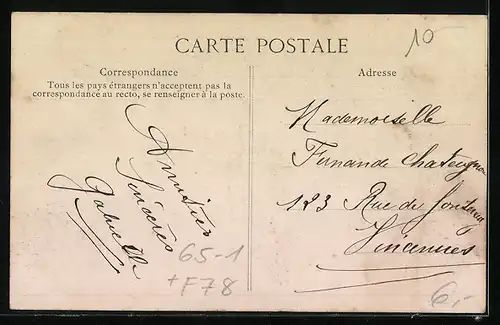 CARTE POSTALE
10
Correspondance
Tous les pays étrangers n'acceptent pas la
correspondance au recto, se renseigner à la poste.
Amitiés
Sincères
Gabrielle
65-1
+F78
Adresse
Mademoiselle
Fernande
123 Rue de
Vincennes
6,-